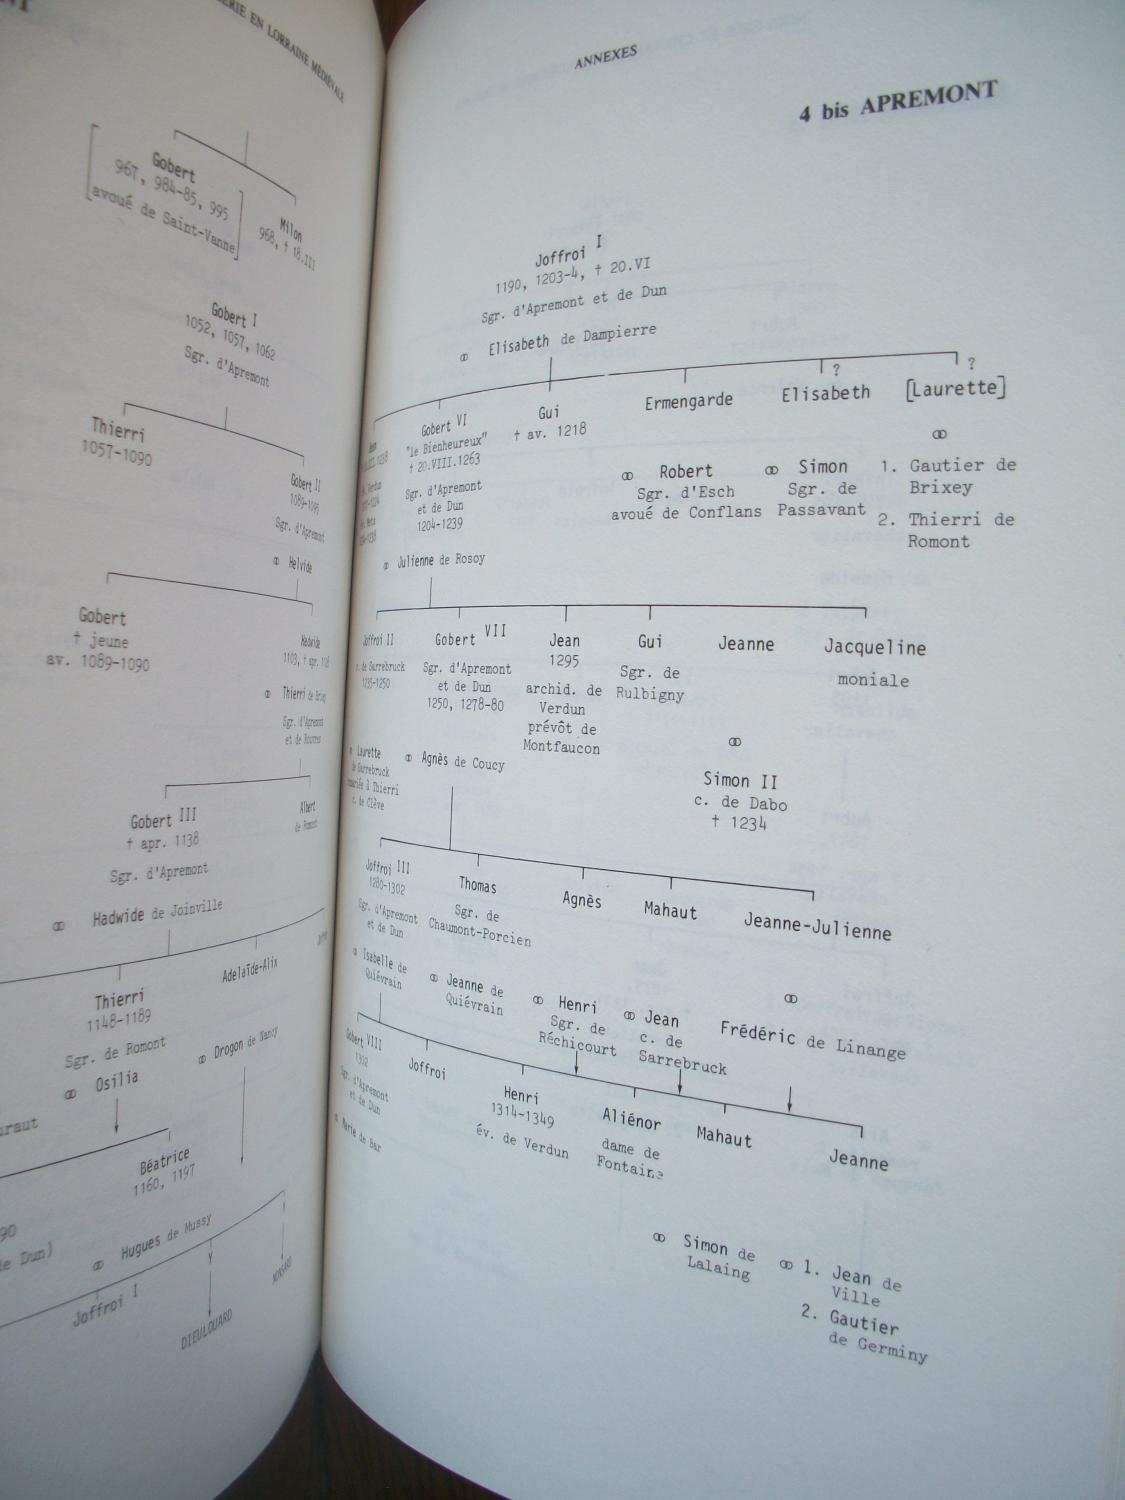 ERIE EN LORRAINE MÉDIÉVALE
Gobert
967, 984-85, 995
avoué de Saint-Vanne
Milon
968, † 18.III
Gobert I
1052, 1057, 1062
Sgr. d'Apremont
Thierri
1057-1090
Gobert II
1089-1095
Sgr. d'Apremont
∞ Helvide
Gobert
† jeune
av. 1089-1090
Hadwide
1103, † apr.
∞ Thierri de
Sgr. d'Apremont
et de
Gobert III
† apr. 1138
Sgr. d'Apremont
∞ Hadwide de Joinville
Albert
de Romont
Thierri
1148-1189
Sgr. de Romont
∞ Osilia
Adelaïde-Alix
∞ Drogon de Nancy
Béatrice
1160, 1197
∞ Hugues de Mussy
de Dun)
Joffroi I
DIEULOUARD
ANNEXES
4 bis APREMONT
Joffroi I
1190, 1203-4, † 20.VI
Sgr. d'Apremont et de Dun
∞ Elisabeth de Dampierre
Jean
Gobert VI
"le Bienheureux"
† 20.VIII.1263
Sgr. d'Apremont
et de Dun
1204-1239
∞ Julienne de Rosoy
Gui
† av. 1218
Ermengarde
∞ Robert
Sgr. d'Esch
avoué de Conflans
?
Elisabeth
∞ Simon
Sgr. de
Passavant
?
[Laurette]
∞
1. Gautier de
Brixey
2. Thierri de
Romont
Joffroi II
c. de Sarrebruck
1235-1250
∞ Laurette
de Sarrebruck
mariée à Thierri
c. de Clève
Gobert VII
Sgr. d'Apremont
et de Dun
1250, 1278-80
∞ Agnès de Coucy
Jean
1295
archid. de
Verdun
prévôt de
Montfaucon
Gui
Sgr. de
Rulbigny
Jeanne
∞
Simon II
c. de Dabo
† 1234
Jacqueline
moniale
Joffroi III
1280-1302
Sgr. d'Apremont
et de Dun
∞ Isabelle de
Quiévrain
Thomas
Sgr. de
Chaumont-Porcien
∞ Jeanne de
Quiévrain
Agnès
∞ Henri
Sgr. de
Réchicourt
Mahaut
∞ Jean
c. de
Sarrebruck
Jeanne-Julienne
∞
Frédéric de Linange
Gobert VIII
1302
Sgr. d'Apremont
et de Dun
∞ Marie de Bar
Joffroi
Henri
1314-1349
év. de Verdun
Aliénor
dame de
Fontaine
∞ Simon de
Lalaing
Mahaut
Jeanne
∞ 1. Jean de
Ville
2. Gautier
de Germiny